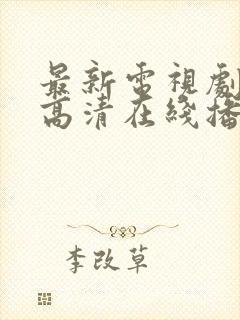 最新電視劇
高清在綫播
李改草